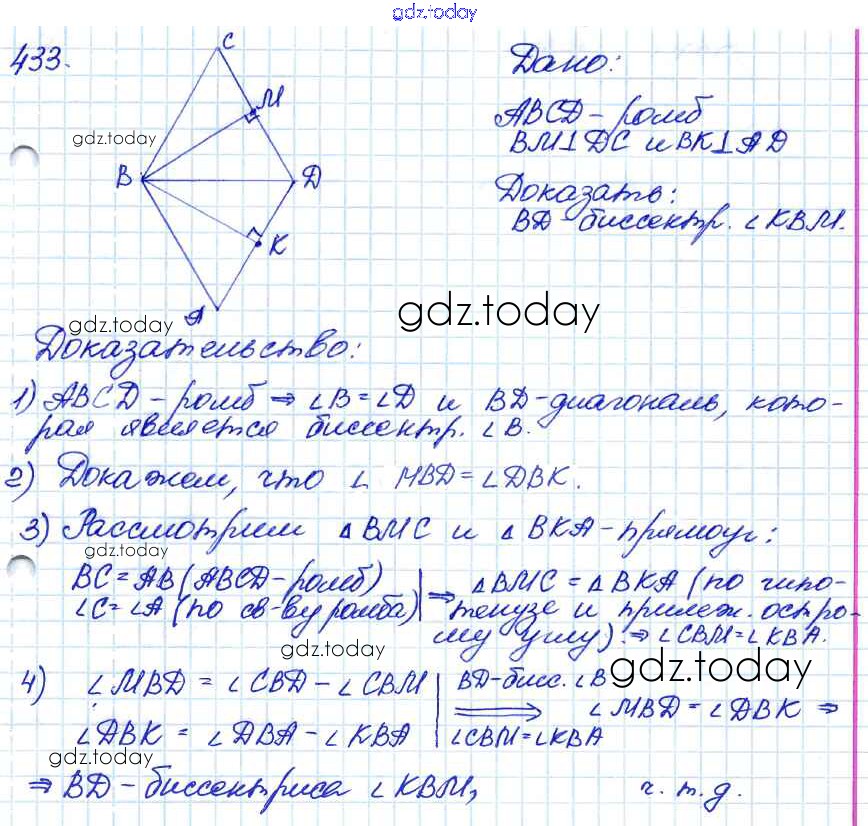 gdz.today
433.
C
M
B
D
K
A
gdz.today
Дано:
ABCD - ромб
BM⊥DC и BK⊥AD
Доказать:
BD - биссектр. ∠KBM.
gdz.today
gdz.today
Доказательство:
1) ABCD - ромб ⇒ ∠B = ∠D и BD - диагональ, кото-
рая является биссектр. ∠B.
2) Докажем, что ∠ MBD = ∠DBK.
3) Рассмотрим △BMC и △BKA - прямоуг:
gdz.today
BC = AB (ABCD - ромб)
∠C = ∠A (по св-ву ромба)
⇒ △BMC = △BKA (по гипо-
тенузе и прилеж. остро-
му углу) ⇒ ∠CBM = ∠KBA.
gdz.today
4) ∠MBD = ∠CBD - ∠CBM
∠DBK = ∠DBA - ∠KBA
BD - бисс. ∠B
⟹
∠CBM = ∠KBA
gdz.today
∠MBD = ∠DBK ⇒
gdz.today
⇒ BD - биссектриса ∠KBM,
ч. т. д.